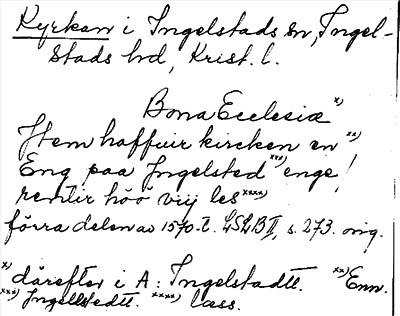 Kyrkan i Ingelstads sn, Ingel-
stads hd, Krist. l.
Bona Ecclesiæ x)
Item haffuir kircken en xx)
Eng paa Ingelsted xxx) enge!
rentir höö viij les xxxx)
förra delen av 1570-t. LSLB II, s. 273. orig.
x) därefter i A: Ingelstadtt. xx) Enn.
xxx) Ingellstedtt. xxxx) læss.